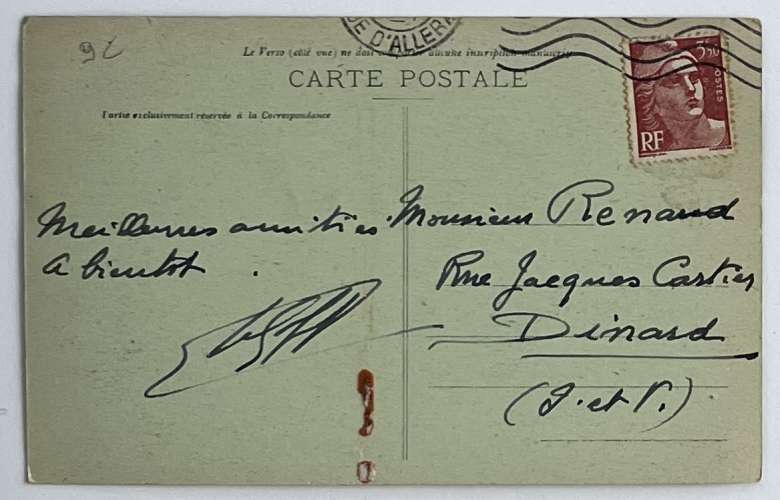 92
E D'ALLER
Le Verso (côté vue) ne doit aucune inscription manuscrite
3F50
POSTES
RF
CARTE POSTALE
Partie exclusivement réservée à la Correspondance
Meilleures amitiés.
A bientôt.
Monsieur Renaud
Rue Jacques Cartier
Dinard
(I. et V.)